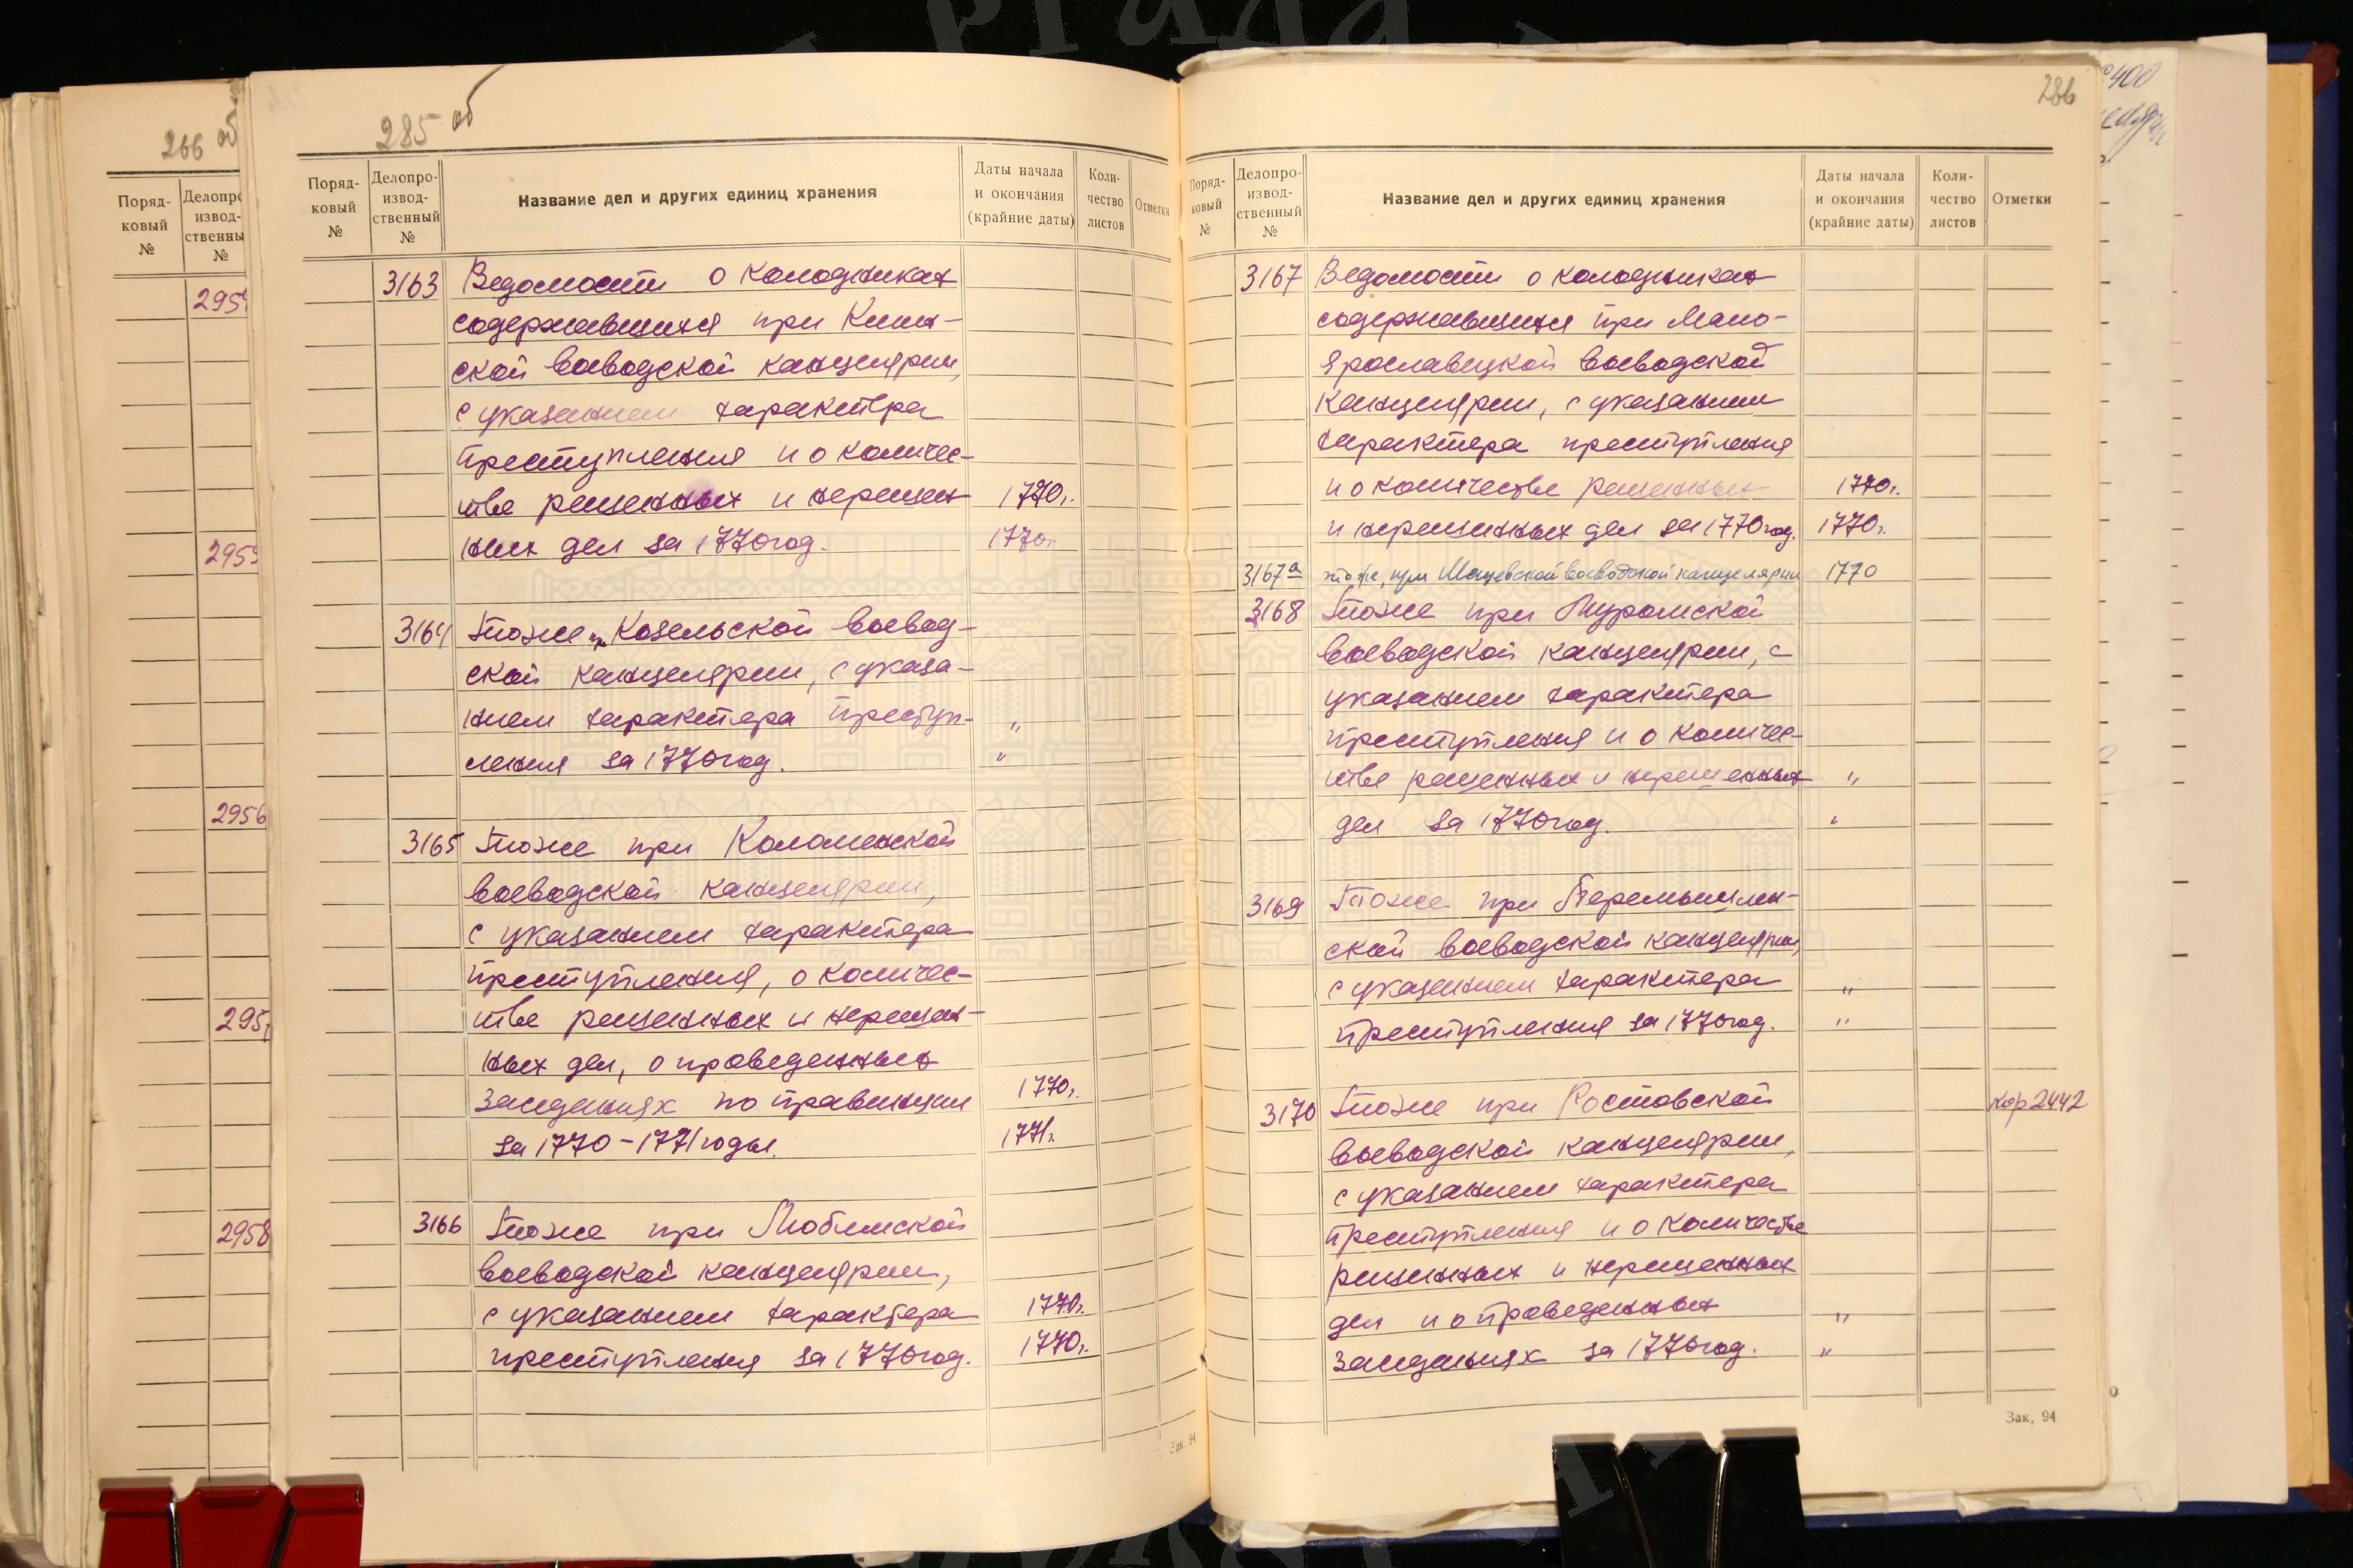 266 об
Поряд-
ковый
№
Делопро
извод-
ственны
№
2955
2956
2958
285 об
Поряд-
ковый
№
Делопро-
извод-
ственный
№
Название дел и других единиц хранения
Даты начала
и окончания
(крайние даты)
Коли-
чество
листов
Отметки
3163 Ведомости о колодниках
содержавшихся при Кинш-
ской воеводской канцелярии,
с указанием характера
преступления и о количес-
тве решенных и нерешен 1770г.
ных дел за 1770год. 1770г.
3164 Тоже при Козельской воевод-
ской канцелярии, с указа-
нием характера преступ- "
ления за 1770год. "
3165 Тоже при Коломенской
воеводской канцелярии,
с указанием характера
преступления, о количес-
тве решенных и нерешен-
ных дел, о проведенных
заседаниях по провинции 1770г.
за 1770-1771годы. 1771г.
3166 Тоже при Любимской
воеводской канцелярии,
с указанием характера 1770г.
преступления за 1770год. 1770г.
Зак. 94
286
Поряд-
ковый
№
Делопро-
извод-
ственный
№
Название дел и других единиц хранения
Даты начала
и окончания
(крайние даты)
Коли-
чество
листов
Отметки
3167 Ведомости о колодниках
содержавшихся при Мало-
ярославецкой воеводской
канцелярии, с указанием
характера преступления
и о количестве решенных 1770г.
и нерешенных дел за 1770год. 1770г.
3167а тоже, при Мещевской воеводской канцелярии 1770
3168 Тоже при Муромской
воеводской канцелярии, с
указанием характера
преступления и о количес-
тве решенных и нерешенных "
дел за 1770год. "
3169 Тоже при Перемышлен-
ской воеводской канцелярии,
с указанием характера "
преступления за 1770год. "
3170 Тоже при Ростовской кор 2442
воеводской канцелярии,
с указанием характера
преступления и о количестве
решенных и нерешенных
дел и о проведенных "
заседаниях за 1770год. "
Зак. 94